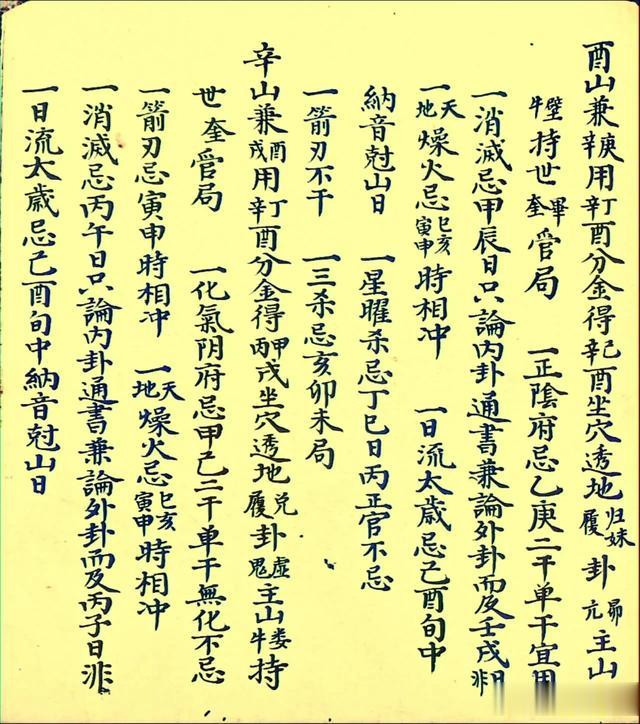 酉山兼庚辛用丁辛酉分金得辛巳酉坐穴透地归妹履卦昴亢主山
壁牛持世畢奎管局　一正陰府忌乙庚二干单干宜用
一消滅忌甲辰日只論内卦通書兼論外卦而及壬戌日非
一天地燥火忌巳亥寅申時相冲　一日流太歳忌己酉旬中
納音尅山日　一星曜杀忌丁巳日丙正官不忌
一箭刃不干　一三杀忌亥卯未局
辛山兼酉戌用丁辛酉分金得甲丙戌坐穴透地兑履卦虚鬼主山娄牛持
世奎管局　一化氣阴府忌甲己二干单干無化不忌
一箭刃忌寅申時相冲　一天地燥火忌巳亥寅申時相冲
一消滅忌丙午日只論内卦通書兼論外卦而及丙子日非
一日流太歳忌己酉旬中納音尅山日